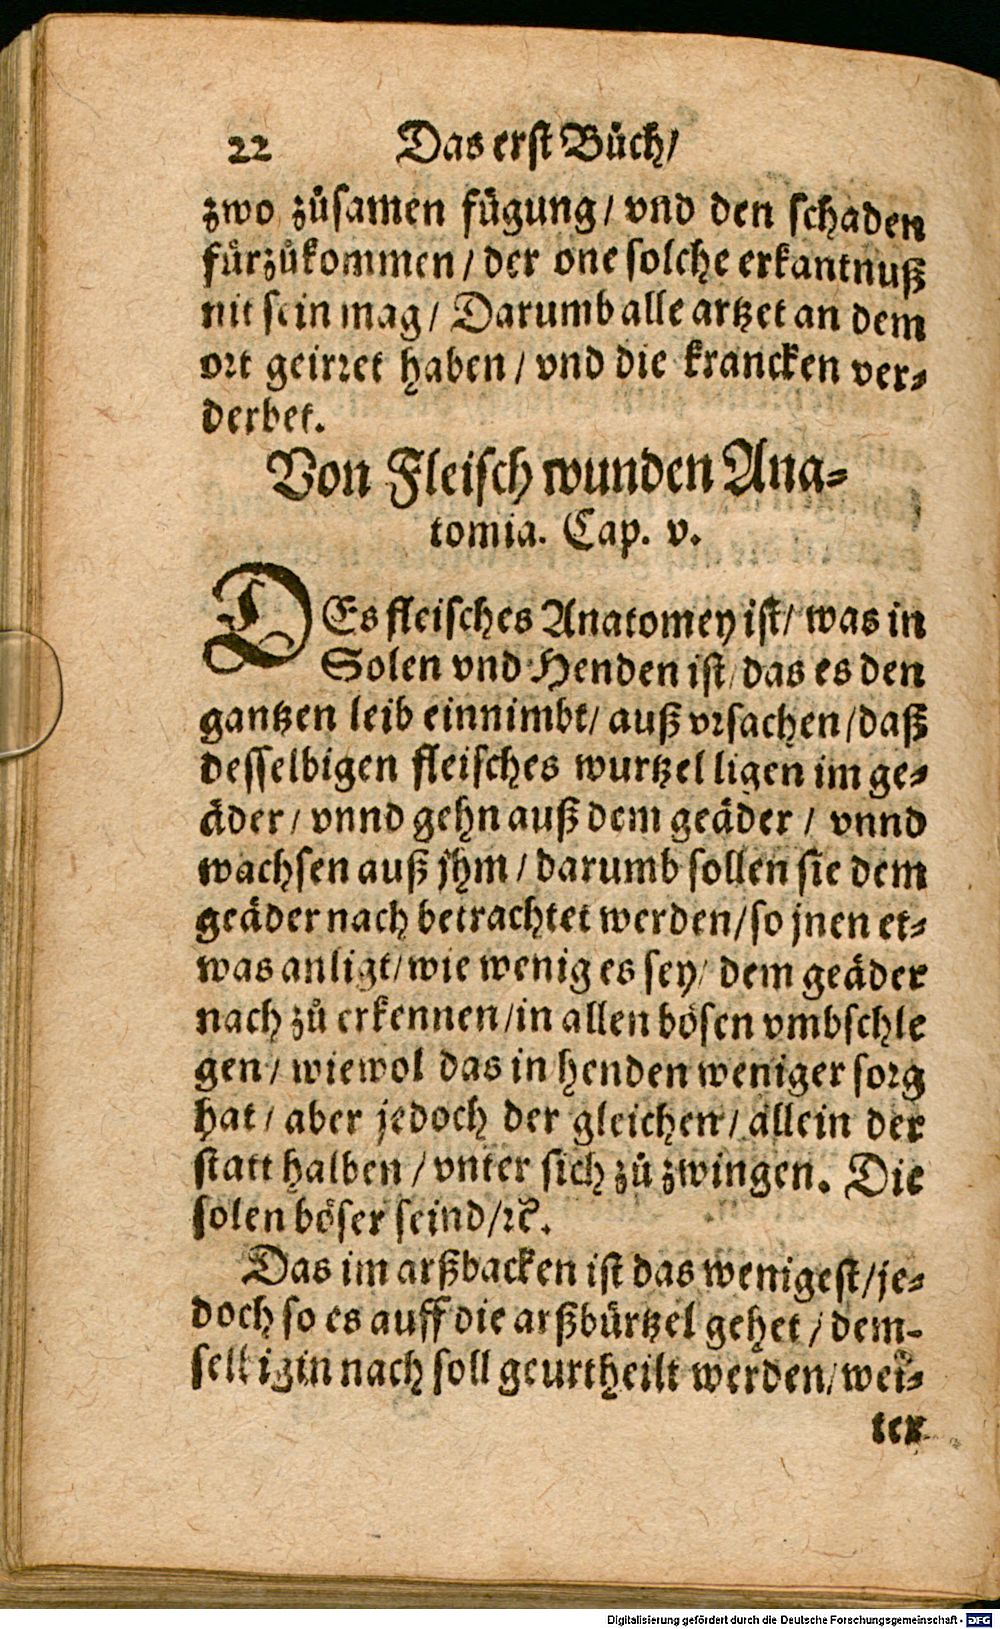 22 Das erst Bůch/
zwo zůsamen fügung/ vnd den schaden
fürzůkommen/ der one solche erkantnuß
nit sein mag/ Darumb alle artzet an dem
ort geirret haben/ vnd die krancken ver-
derbet.
Von Fleisch wunden Ana-
tomia. Cap. v.
DEs fleisches Anatomey ist/ was in
Solen vnd Henden ist/ das es den
gantzen leib einnimbt/ auß vrsachen/ daß
desselbigen fleisches wurtzel ligen im ge-
äder/ vnnd gehn auß dem geäder/ vnnd
wachsen auß jhm/ darumb sollen sie dem
geäder nach betrachtet werden/ so jnen et-
was anligt/ wie wenig es sey/ dem geäder
nach zů erkennen/ in allen bösen vmbschle
gen/ wiewol das in henden weniger sorg
hat/ aber jedoch der gleichen/ allein der
statt halben/ vnter sich zů zwingen. Die
solen böser seind/ ꝛc̃.
Das im arßbacken ist das wenigest/ je-
doch so es auff die arßbürtzel gehet/ dem-
selbigin nach soll geurtheilt werden/ wei-
ter
Digitalisierung gefördert durch die Deutsche Forschungsgemeinschaft - DFG